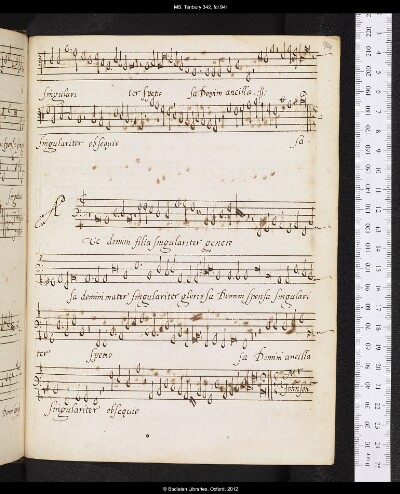 MS. Tenbury 342, fol.94r
94
singulari ter speto sa Domini ancilla .ij.
singulariter obsequio sa
A
Ve domini filia singulariter genero
sa domini mater singulariter glorio sa Domini sponsa singulari
ter speto sa Domini ancilla
singulariter obsequio
Mr
Johnson
© Bodleian Libraries, Oxford, 2012